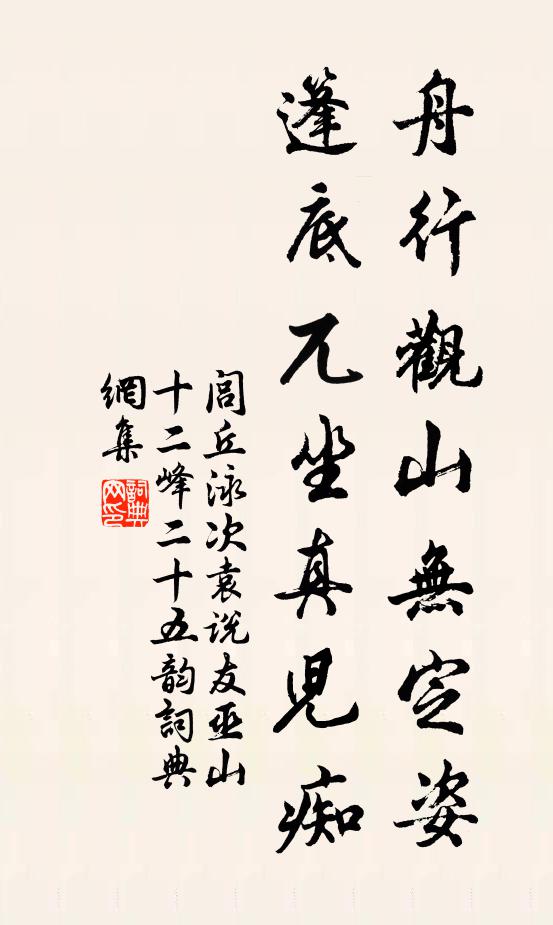 舟行觀山無定姿
篷底兀坐真兒痴
閭丘泳次袁说友巫山
十二峰二十五韵詞典
網集
詞典
网印